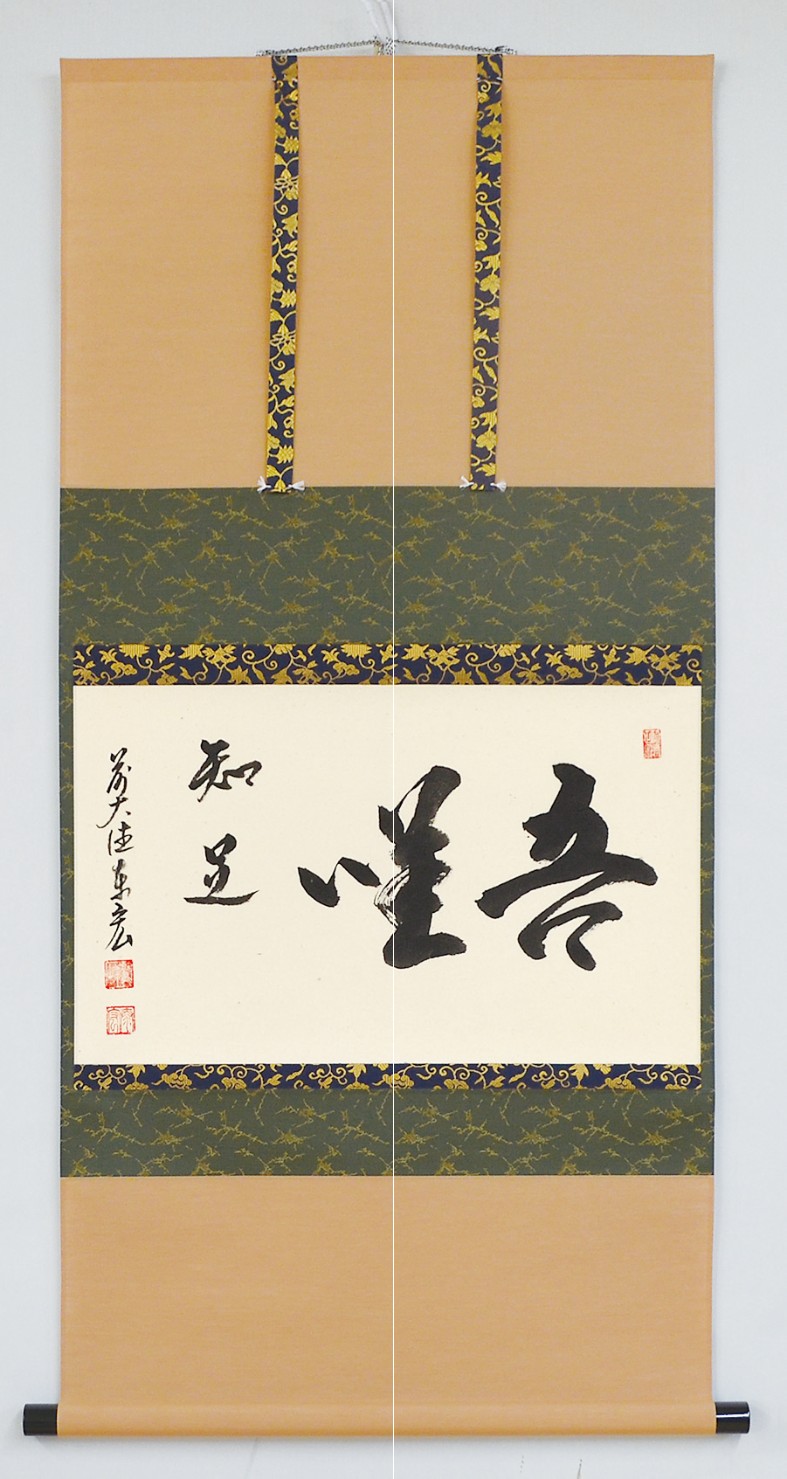 吾唯
知足
前大徳東宏